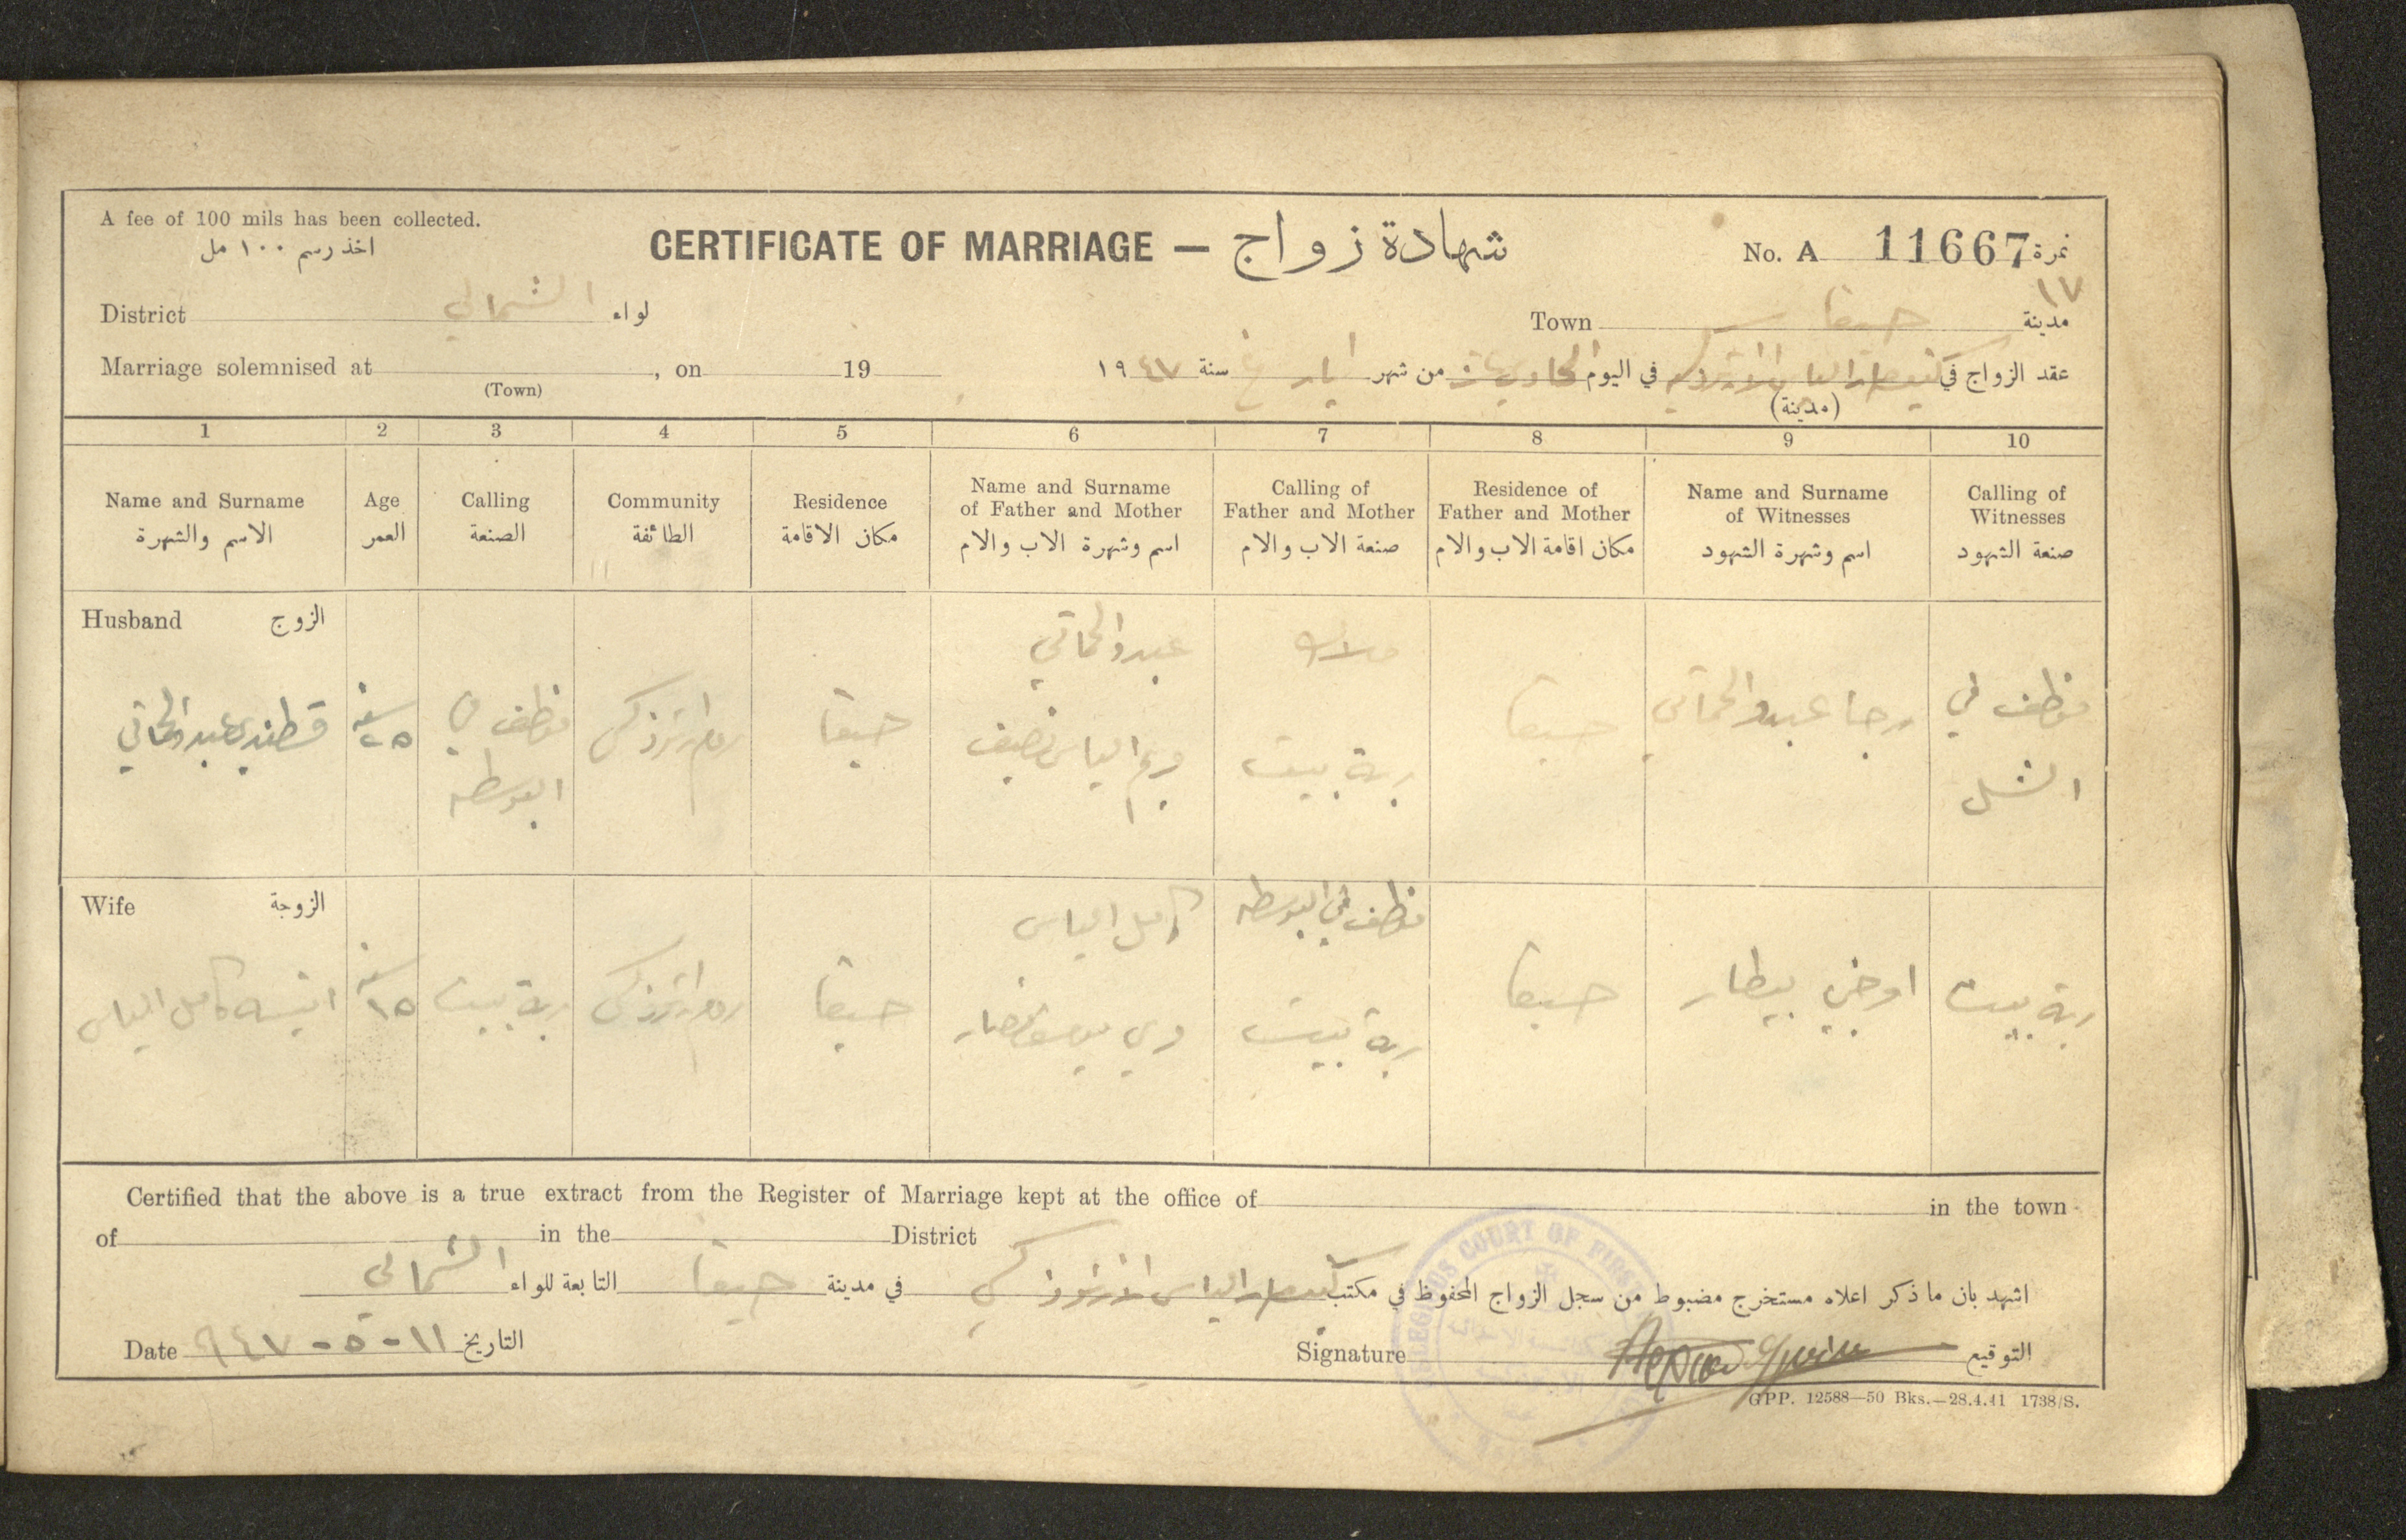 A fee of 100 mils has been collected.
اخذ رسم ١٠٠ مل
CERTIFICATE OF MARRIAGE — شهادة زواج
No. A 11667 نمرة
١٧
District الشمالي لواء
Town حيفا مدينة
Marriage solemnised at , on 19
(Town)
عقد الزواج في في اليوم الحادي عشر من شهر ايار سنة ١٩٤٧
(مدينة)
1 2 3 4 5 6 7 8 9 10
Name and Surname Age Calling Community Residence Name and Surname of Father and Mother Calling of Father and Mother Residence of Father and Mother Name and Surname of Witnesses Calling of Witnesses
الاسم والشهرة العمر الصنعة الطائفة مكان الاقامة اسم وشهرة الاب والام صنعة الاب والام مكان اقامة الاب والام اسم وشهرة الشهود صنعة الشهود
Husband الزوج
قسطندي عبدو الحماتي
٢٥ سنه
موظف في
البوسطه
روم ارثوذكس
حيفا
عبدو الحماتي
مريم الياس نصيف
ملاك
ربة بيت
حيفا
رجا عبدو الحماتي
موظف في
الشل
Wife الزوجة
انيسه كامل الياس
١٥ سنه
ربة بيت
روم ارثوذكس
حيفا
كامل الياس
ماري يوسف نصار
موظف في البوسطه
ربة بيت
حيفا
اوجني بيطار
ربة بيت
Certified that the above is a true extract from the Register of Marriage kept at the office of in the town
of in the District
اشهد بان ما ذكر اعلاه مستخرج مضبوط من سجل الزواج المحفوظ في مكتب كنيسة مار الياس الارثوذكس في مدينة حيفا التابعة للواء الشمالي
Date ١١-٥-٩٤٧ التاريخ
Signature التوقيع
GPP. 12588—50 Bks.—28.4.41 1738/S.
RELIGIOUS COURT OF FIRST